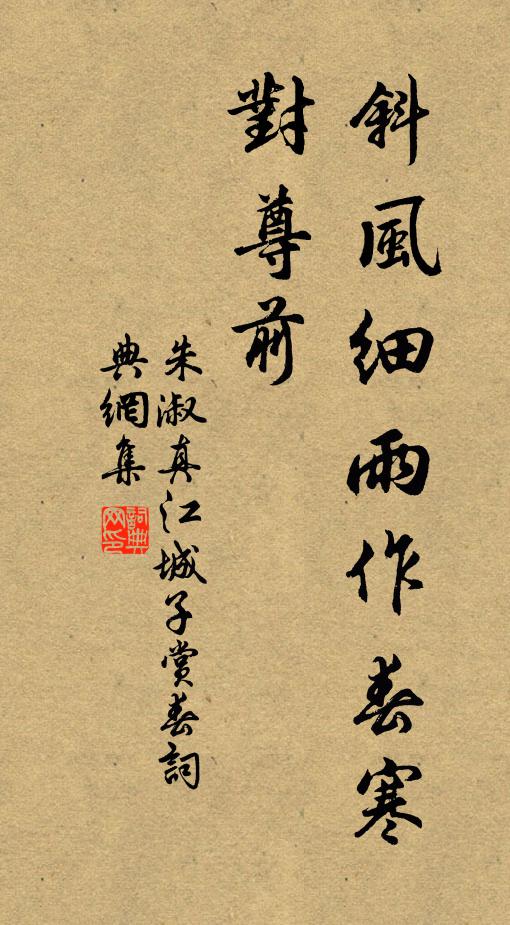 斜風細雨作春寒
對尊前
朱淑真江城子賞春詞
典網集
詞典
网印